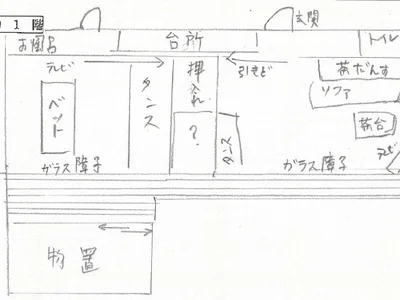 1階
玄関
お風呂
台所
トイレ
テレビ
タンス
押入れ
引きど
茶だんす
ソファ
ベット
?
タンス
茶台
テレビ
ガラス障子
ガラス障子
物置